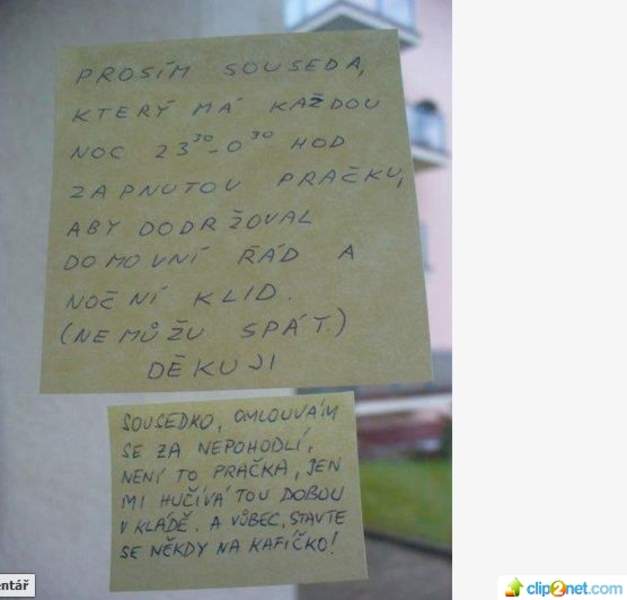 PROSÍM SOUSEDA,
KTERÝ MÁ KAŽDOU
NOC 23³⁰-0³⁰ HOD
ZAPNUTOU PRAČKU,
ABY DODRŽOVAL
DOMOVNÍ ŘÁD A
NOČNÍ KLID.
(NEMŮŽU SPÁT.)
DĚKUJI
SOUSEDKO, OMLOUVÁM
SE ZA NEPOHODLÍ,
NENÍ TO PRAČKA, JEN
MI HUČÍVÁ TOU DOBOU
V KLÁDĚ. A VŮBEC, STAVTE
SE NĚKDY NA KAFÍČKO!
entář
clip2net.com